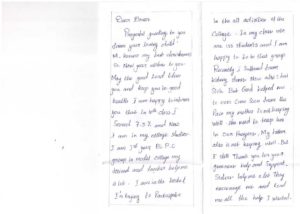 Dear Donor
Prayerful greeting to you
from your loving child
We know my best
to Near wishes to you
May the good Lord bless
you and keep you in good
health. I am happy to inform
you that in 10th class I
Scored 7.3% and Now
I am in my college studies
I am 1st year Bi.P.C
group in model college my
and teacher helps me
a lot. I am in the hostel
I'm trying to Participate
In the all activities of the
College. In my class who
are 55 students and I am
happy to be in that group
Recently I suffered from
kidney stones Now also I am
Sick. But God helped me
to over Come from the
Pain my mother is not keeping
well. She need to keep her
in Our Prayers. My
is also not keeping well. But
I still Thank you for your
generous help and Support.
Sisters helps a lot They
encourage me and lend
me all the help I wanted.